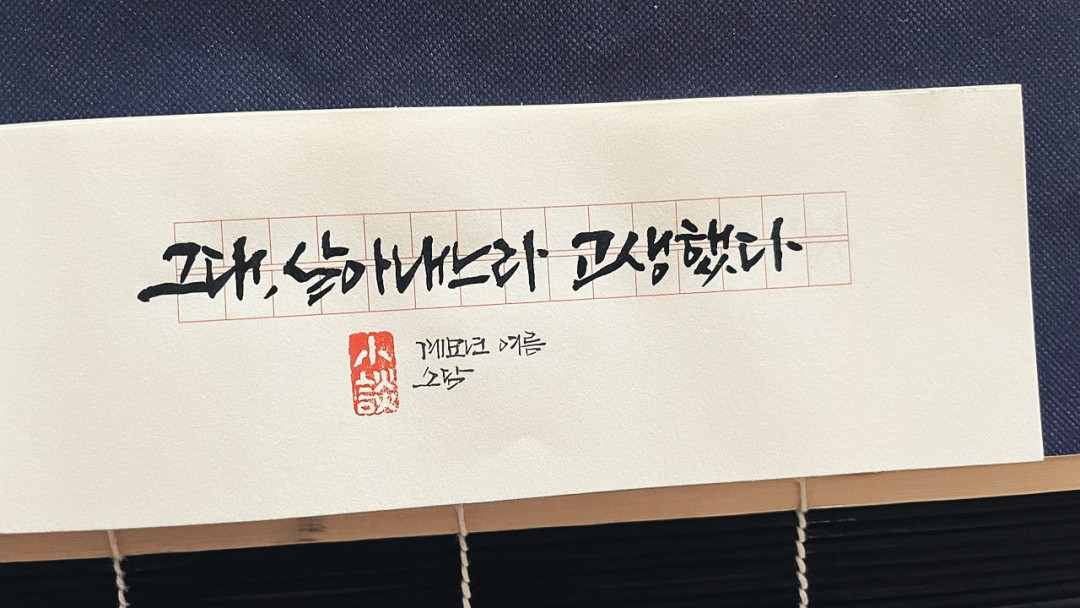 그대, 살아내느라 고생했다
小談
계묘년 여름
소담